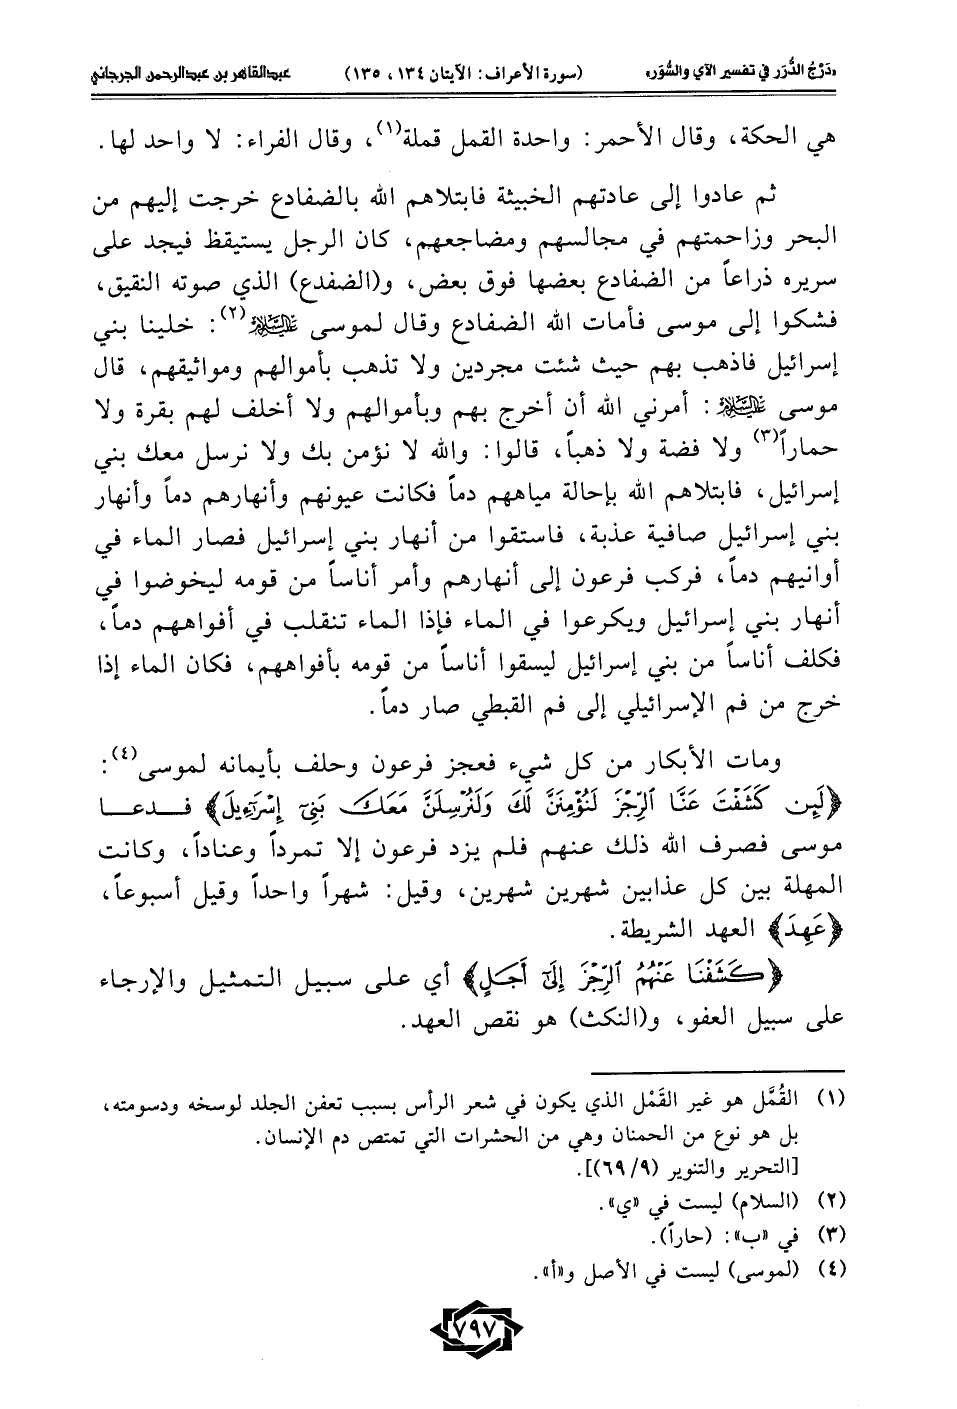 «دَرْجُ الدُّرَر في تفسير الآي والسُّوَر» (سورة الأعراف: الآيتان ١٣٤، ١٣٥) عبدالقاهر بن عبدالرحمن الجرجاني
هي الحكة، وقال الأحمر: واحدة القمل قملة(١)، وقال الفراء: لا واحد لها.
ثم عادوا إلى عادتهم الخبيثة فابتلاهم الله بالضفادع خرجت إليهم من
البحر وزاحمتهم في مجالسهم ومضاجعهم، كان الرجل يستيقظ فيجد على
سريره ذراعاً من الضفادع بعضها فوق بعض، و(الضفدع) الذي صوته النقيق،
فشكوا إلى موسى فأمات الله الضفادع وقال لموسى عليه السلام(٢): خلينا بني
إسرائيل فاذهب بهم حيث شئت مجردين ولا تذهب بأموالهم ومواثيقهم، قال
موسى عليه السلام: أمرني الله أن أخرج بهم وبأموالهم ولا أخلف لهم بقرة ولا
حماراً(٣) ولا فضة ولا ذهباً، قالوا: والله لا نؤمن بك ولا نرسل معك بني
إسرائيل، فابتلاهم الله بإحالة مياههم دماً فكانت عيونهم وأنهارهم دماً وأنهار
بني إسرائيل صافية عذبة، فاستقوا من أنهار بني إسرائيل فصار الماء في
أوانيهم دماً، فركب فرعون إلى أنهارهم وأمر أناساً من قومه ليخوضوا في
أنهار بني إسرائيل ويكرعوا في الماء فإذا الماء تنقلب في أفواههم دماً،
فكلف أناساً من بني إسرائيل ليسقوا أناساً من قومه بأفواههم، فكان الماء إذا
خرج من فم الإسرائيلي إلى فم القبطي صار دماً.
ومات الأبكار من كل شيء فعجز فرعون وحلف بأيمانه لموسى(٤):
﴿لَئِن كَشَفْتَ عَنَّا ٱلرِّجْزَ لَنُؤْمِنَنَّ لَكَ وَلَنُرْسِلَنَّ مَعَكَ بَنِىٓ إِسْرَٰٓءِيلَ﴾ فـدعـا
موسى فصرف الله ذلك عنهم فلم يزد فرعون إلا تمرداً وعناداً، وكانت
المهلة بين كل عذابين شهرين شهرين، وقيل: شهراً واحداً وقيل أسبوعاً،
﴿عَهِدَ﴾ العهد الشريطة.
﴿كَشَفْنَا عَنْهُمُ ٱلرِّجْزَ إِلَىٰٓ أَجَلٍ﴾ أي على سبيل التمثيل والإرجاء
على سبيل العفو، و(النكث) هو نقص العهد.
(١) القُمَّل هو غير القَمْل الذي يكون في شعر الرأس بسبب تعفن الجلد لوسخه ودسومته،
بل هو نوع من الحمنان وهي من الحشرات التي تمتص دم الإنسان.
[التحرير والتنوير (٦٩/٩)].
(٢) (السلام) ليست في «ي».
(٣) في «ب»: (حاراً).
(٤) (لموسى) ليست في الأصل و«أ».
٧٩٧